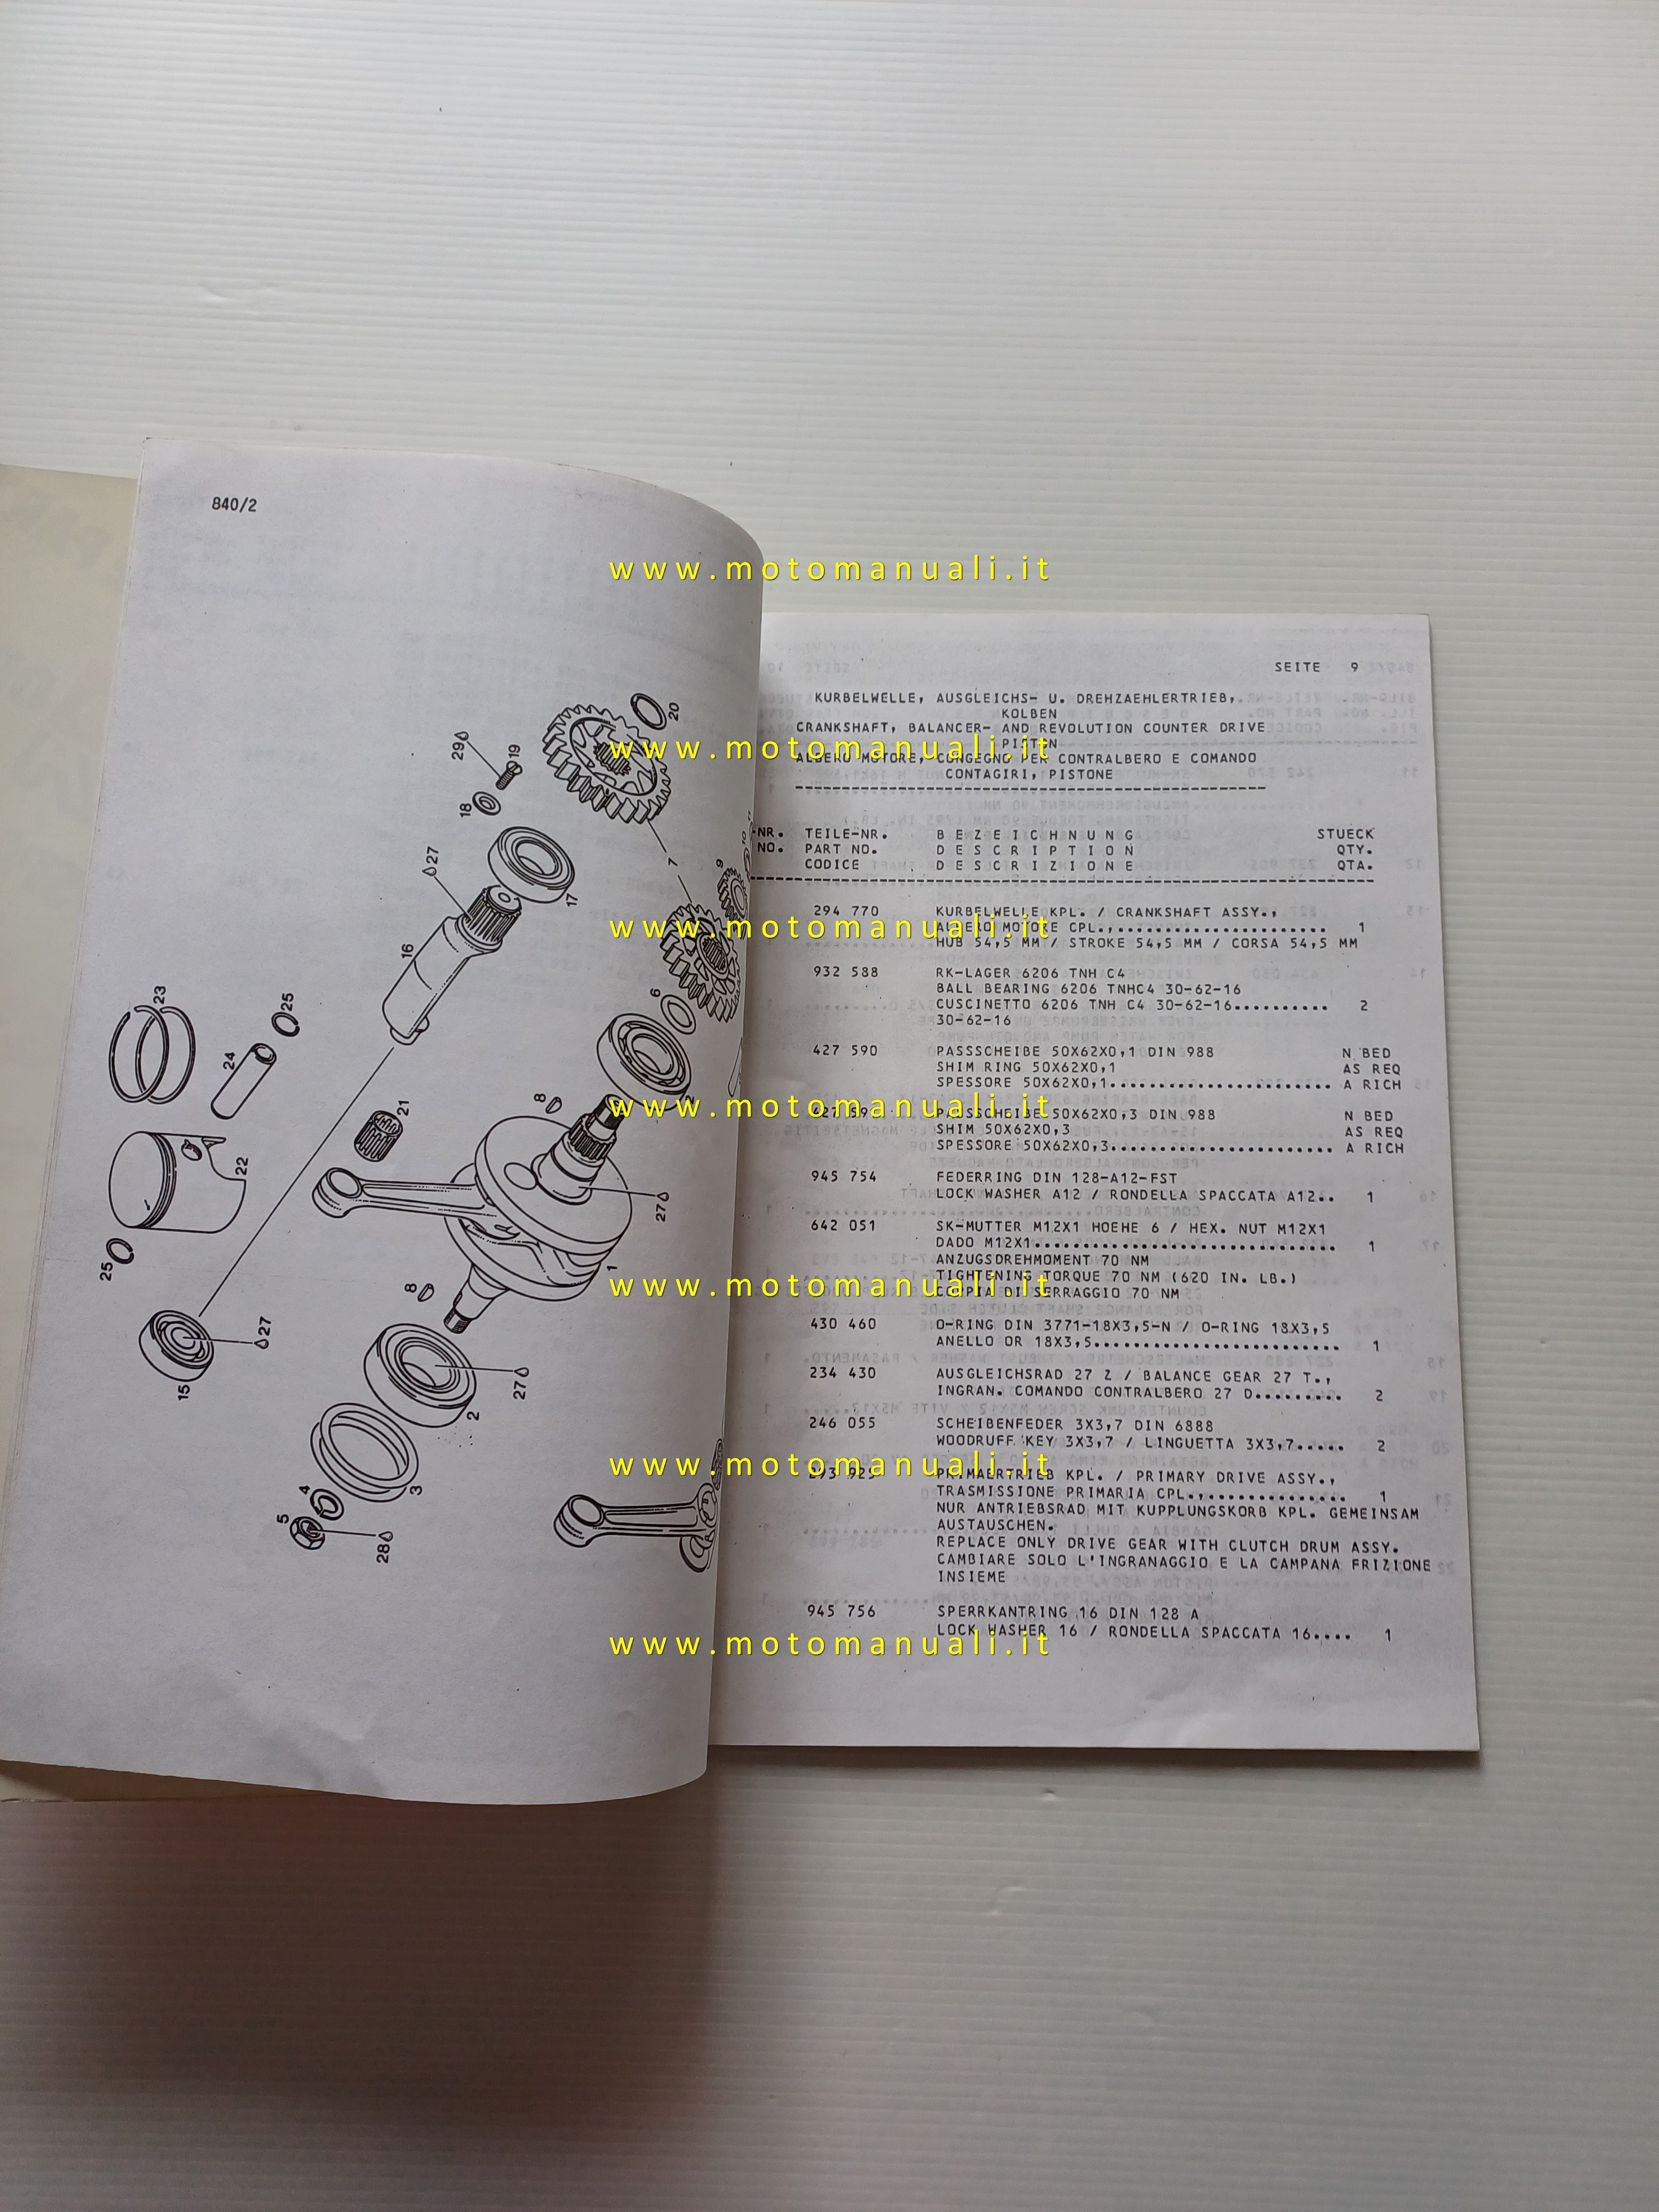 840/2
29
19
20
18
27
7
10
11
9
17
16
6
23
25
24
8
2
21
22
27
1
25
8
27
15
27
2
3
4
5
28
SEITE 9
KURBELWELLE, AUSGLEICHS- U. DREHZAEHLERTRIEB,
KOLBEN
CRANKSHAFT, BALANCER- AND REVOLUTION COUNTER DRIVE
PISTON
ALBERO MOTORE, CONGEGNO PER CONTRALBERO E COMANDO
CONTAGIRI, PISTONE
-NR. TEILE-NR. B E Z E I C H N U N G STUECK
NO. PART NO. D E S C R I P T I O N QTY.
CODICE D E S C R I Z I O N E QTA.
294 770 KURBELWELLE KPL. / CRANKSHAFT ASSY.,
ALBERO MOTORE CPL.,....................... 1
HUB 54,5 MM / STROKE 54,5 MM / CORSA 54,5 MM
932 588 RK-LAGER 6206 TNH C4
BALL BEARING 6206 TNHC4 30-62-16
CUSCINETTO 6206 TNH C4 30-62-16.......... 2
30-62-16
427 590 PASSSCHEIBE 50X62X0,1 DIN 988 N BED
SHIM RING 50X62X0,1 AS REQ
SPESSORE 50X62X0,1....................... A RICH
PASSSCHEIBE 50X62X0,3 DIN 988 N BED
SHIM 50X62X0,3 AS REQ
SPESSORE 50X62X0,3....................... A RICH
945 754 FEDERRING DIN 128-A12-FST
LOCK WASHER A12 / RONDELLA SPACCATA A12.. 1
642 051 SK-MUTTER M12X1 HOEHE 6 / HEX. NUT M12X1
DADO M12X1............................... 1
ANZUGSDREHMOMENT 70 NM
TIGHTENING TORQUE 70 NM (620 IN. LB.)
COPPIA DI SERRAGGIO 70 NM
430 460 O-RING DIN 3771-18X3,5-N / O-RING 18X3,5
ANELLO OR 18X3,5......................... 1
234 430 AUSGLEICHSRAD 27 Z / BALANCE GEAR 27 T.,
INGRAN. COMANDO CONTRALBERO 27 D......... 2
246 055 SCHEIBENFEDER 3X3,7 DIN 6888
WOODRUFF KEY 3X3,7 / LINGUETTA 3X3,7..... 2
PRIMAERTRIEB KPL. / PRIMARY DRIVE ASSY.,
TRASMISSIONE PRIMARIA CPL.,.............. 1
NUR ANTRIEBSRAD MIT KUPPLUNGSKORB KPL. GEMEINSAM
AUSTAUSCHEN.
REPLACE ONLY DRIVE GEAR WITH CLUTCH DRUM ASSY.
CAMBIARE SOLO L'INGRANAGGIO E LA CAMPANA FRIZIONE
INSIEME
945 756 SPERRKANTRING 16 DIN 128 A
LOCK WASHER 16 / RONDELLA SPACCATA 16.... 1
www.motomanuali.it
www.motomanuali.it
www.motomanuali.it
www.motomanuali.it
www.motomanuali.it
www.motomanuali.it
www.motomanuali.it